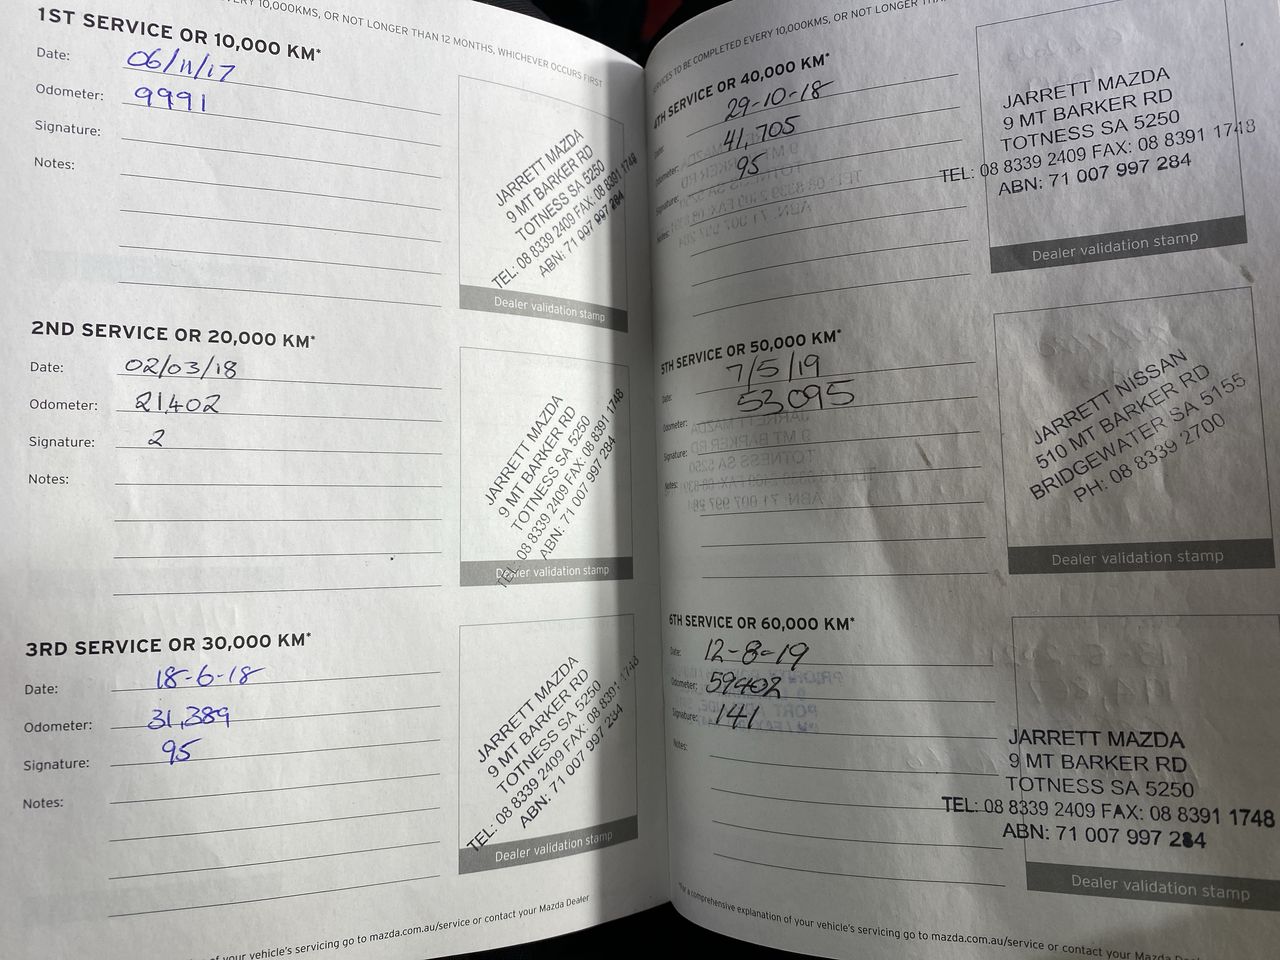 ERY 10,000KMS, OR NOT LONGER THAN 12 MONTHS, WHICHEVER OCCURS FIRST
1ST SERVICE OR 10,000 KM*
Date: 06/11/17
Odometer: 9991
Signature:
Notes:
JARRETT MAZDA
9 MT BARKER RD
TOTNESS SA 5250
TEL: 08 8339 2409 FAX: 08 8391 1748
ABN: 71 007 997 284
Dealer validation stamp
2ND SERVICE OR 20,000 KM*
Date: 02/03/18
Odometer: 21,402
Signature: 2
Notes:
JARRETT MAZDA
9 MT BARKER RD
TOTNESS SA 5250
TEL: 08 8339 2409 FAX: 08 8391 1748
ABN: 71 007 997 284
Dealer validation stamp
3RD SERVICE OR 30,000 KM*
Date: 18-6-18
Odometer: 31,389
Signature: 95
Notes:
JARRETT MAZDA
9 MT BARKER RD
TOTNESS SA 5250
TEL: 08 8339 2409 FAX: 08 8391 1748
ABN: 71 007 997 284
Dealer validation stamp
of your vehicle's servicing go to mazda.com.au/service or contact your Mazda Dealer
SERVICES TO BE COMPLETED EVERY 10,000KMS, OR NOT LONGER THAN
4TH SERVICE OR 40,000 KM*
Date: 29-10-18
Odometer: 41,705
Signature: 95
Notes:
JARRETT MAZDA
9 MT BARKER RD
TOTNESS SA 5250
TEL: 08 8339 2409 FAX: 08 8391 1748
ABN: 71 007 997 284
Dealer validation stamp
5TH SERVICE OR 50,000 KM*
Date: 7/5/19
Odometer: 53095
Signature:
Notes:
JARRETT NISSAN
510 MT BARKER RD
BRIDGEWATER SA 5155
PH: 08 8339 2700
Dealer validation stamp
6TH SERVICE OR 60,000 KM*
Date: 12-8-19
Odometer: 59402
Signature: 141
Notes:
JARRETT MAZDA
9 MT BARKER RD
TOTNESS SA 5250
TEL: 08 8339 2409 FAX: 08 8391 1748
ABN: 71 007 997 284
Dealer validation stamp
*For a comprehensive explanation of your vehicle's servicing go to mazda.com.au/service or contact your Mazda